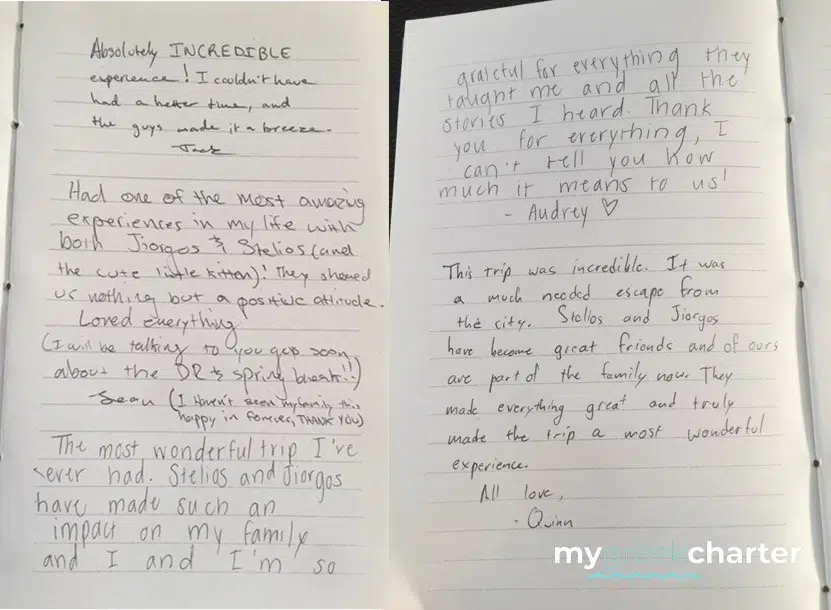 Absolutely INCREDIBLE
experience! I couldn't have
had a better time, and
the guys made it a breeze.
Jack
Had one of the most amazing
experiences in my life with
both Jiorgos & Stelios (and
the cute little kitten)! They showed
us nothing but a positive attitude.
Loved everything
(I will be talking to you guys soon
about the DR & spring break!!)
Sean (I Haven't seen my family this
happy in forever, THANK YOU)
The most wonderful trip I've
ever had. Stelios and Jiorgos
have made such an
impact on my family
and I and I'm so
grateful for everything they
taught me and all the
stories I heard. Thank
you for everything, I
can't tell you how
much it means to us!
- Audrey ♡
This trip was incredible. It was
a much needed escape from
the city. Stelios and Jiorgos
have become great friends and of ours
are part of the family now. They
made everything great and truly
made the trip a most wonderful
experience.
All love,
- Quinn
mygreekcharter